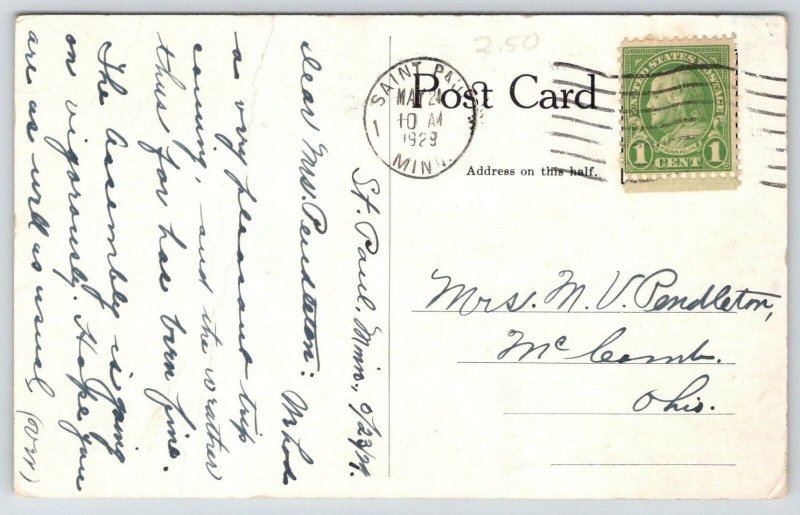 St. Paul, Minn., 5/23/29.
Dear Mrs. Pendleton: We had
a very pleasant trip
coming, and the weather
thus far has been fine.
The Assembly is going
on vigorously. Hope you
are as well as usual,
2.50
SAINT PAUL
MAY 24
10 AM
1929
MINN.
1
Post Card
Address on this half.
UNITED STATES POSTAGE
FRANKLIN
1 CENT 1
Mrs. M. V. Pendleton,
McComb.
Ohio.